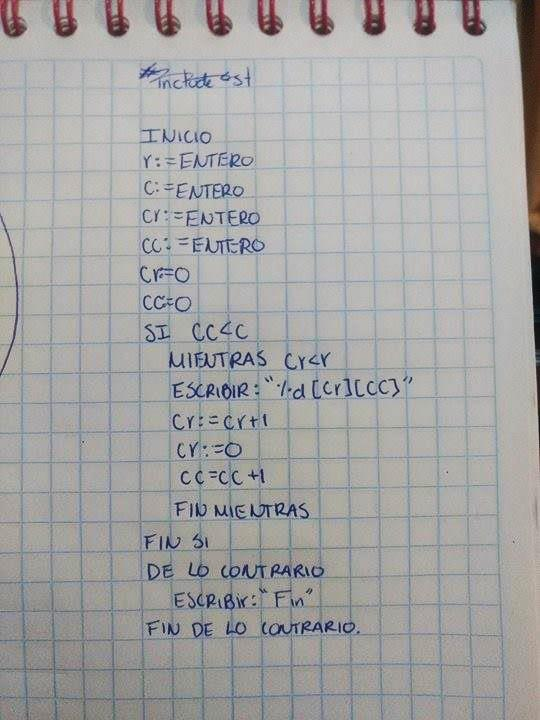 #include <st
INICIO
r:=ENTERO
C:=ENTERO
Cr:=ENTERO
CC:=ENTERO
Cr=0
CC=0
SI CC<C
MIENTRAS Cr<r
ESCRIBIR:"%d[Cr][CC}"
Cr:=Cr+1
Cr:=0
CC=CC+1
FIN MIENTRAS
FIN SI
DE LO CONTRARIO
ESCRIBIr:"Fin"
FIN DE LO CONTRARIO.